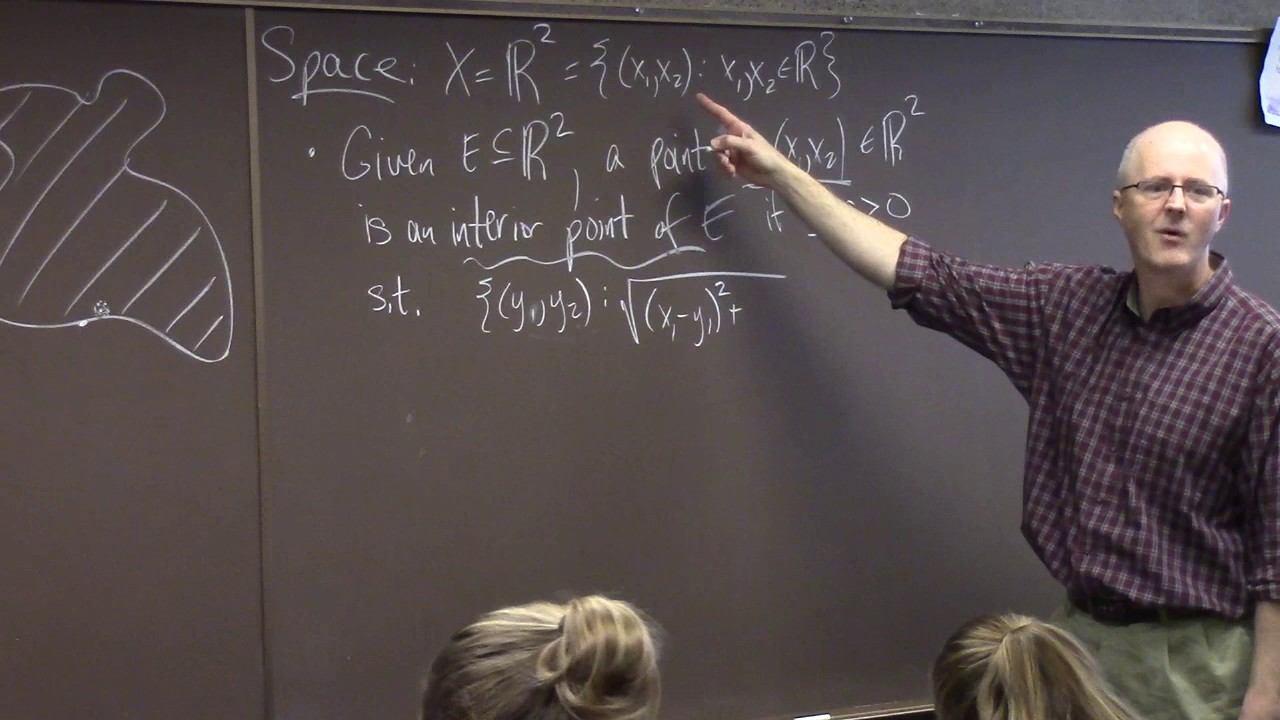 Space: X = ℝ² = {(x₁,x₂) : x₁,x₂ ∈ ℝ}
· Given E ⊆ ℝ², a point (x₁,x₂) ∈ ℝ²
is an interior point of E if >0
s.t. {(y₁,y₂) : √(x₁-y₁)²+